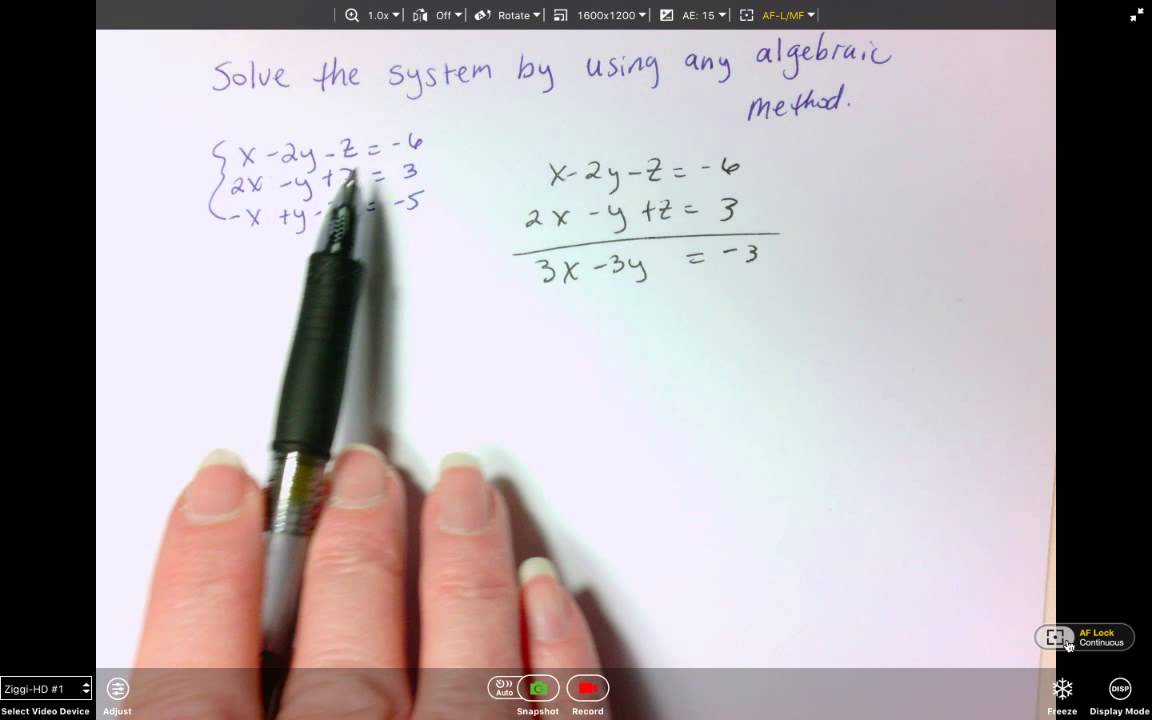 1.0x Off Rotate 1600x1200 AE: 15 AF-L/MF
Solve the system by using any algebraic
method.
x - 2y - z = -6
2x - y + = 3
-x + y - = -5
x - 2y - z = -6
2x - y + z = 3
3x - 3y = -3
AF Lock
Continuous
Ziggi-HD #1
Auto
DISP
Select Video Device Adjust Snapshot Record Freeze Display Mode